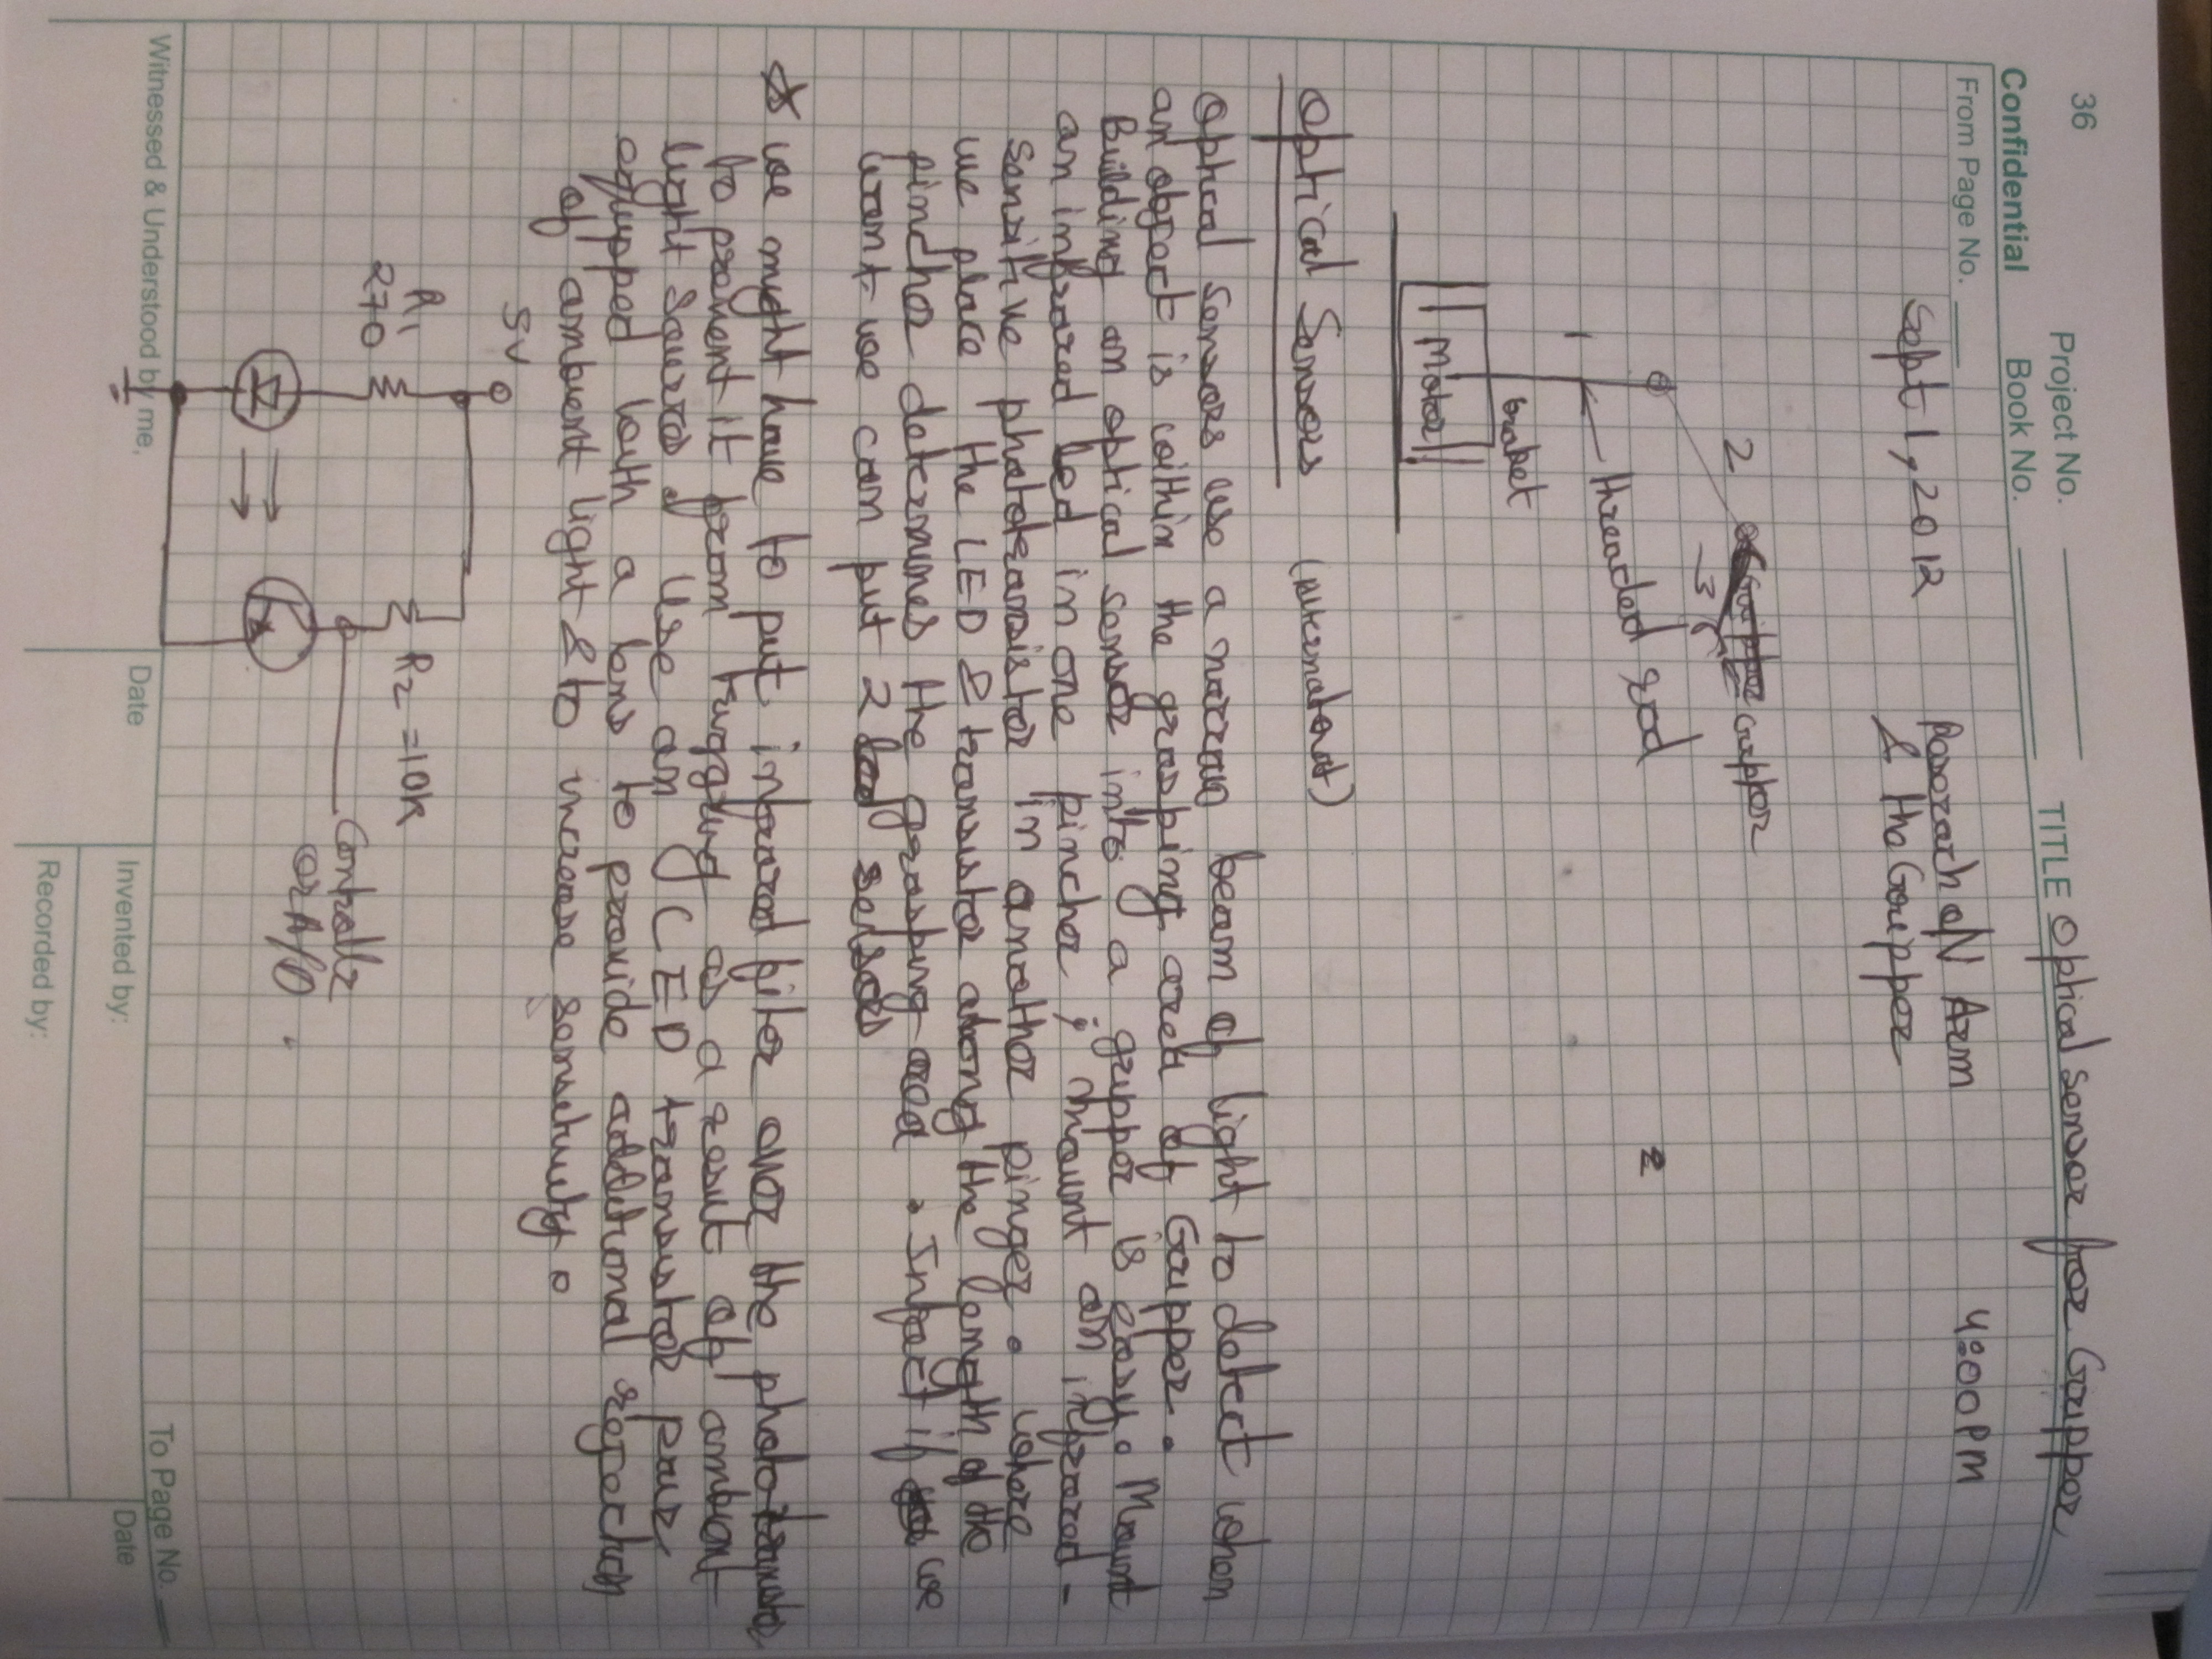 36
Project No.
TITLE Optical sensor for Gripper
Confidential
Book No.
From Page No.
Sept 1, 2012
Research on Arm
& the Gripper
4:00 PM
2
Gripper Gripper
3
threaded rod
2
1
braket
Motor
Optical Sensors (Alternatives)
Optical sensors use a narrow beam of light to detect when
an object is within the grasping area of Gripper. 
Building an optical sensor into a gripper is easy. Mount
an infrared led in one pincher; mount an infrared-
sensitive phototransistor in another pinger. where
we place the LED & transistor along the length of the
pincher determines the grasping area. Infact if we
want we can put 2 sensors
* we might have to put infrared filter over the phototransistor
to prevent it from triggering as a result of ambient
light sources. Use an LED transistor pair
equipped with a lens to provide additional rejection
of ambient light & to increase sensitivity.
5V
R1
270
R2 = 10K
Controller
or A/D
Witnessed & Understood by me,
Date
Invented by:
Date
Recorded by:
To Page No.